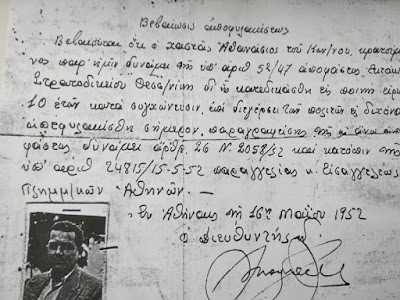 Βεβαίωσις αποφυλακίσεως
Βεβαιούται ότι ο Χατζής Αθανάσιος του Κων/νου, κρατούμε
νος παρ' ημίν δυνάμει της υπ' αριθ 52/47 αποφάσεως Εκτάκ
Στρατοδικείου Θεσσ/νίκης δι' ης κατεδικάσθη εις ποινήν ειρκ
10 ετών κατά συγχώνευσιν, επί διεγέρσει των πολιτών εις διχόνοι
απεφυλακίσθη σήμερον, παραγραφείσης της
φάσεως δυνάμει άρθρ. 26 Ν. 2058/52 και κατόπιν της
υπ' αριθ 24815/15-5-52 παραγγελίας κ. Εισαγγελέως
Πλημμ/κών Αθηνών –
Εν Αθήναις τη 16η Μαΐου 1952
Ο Διευθυντής